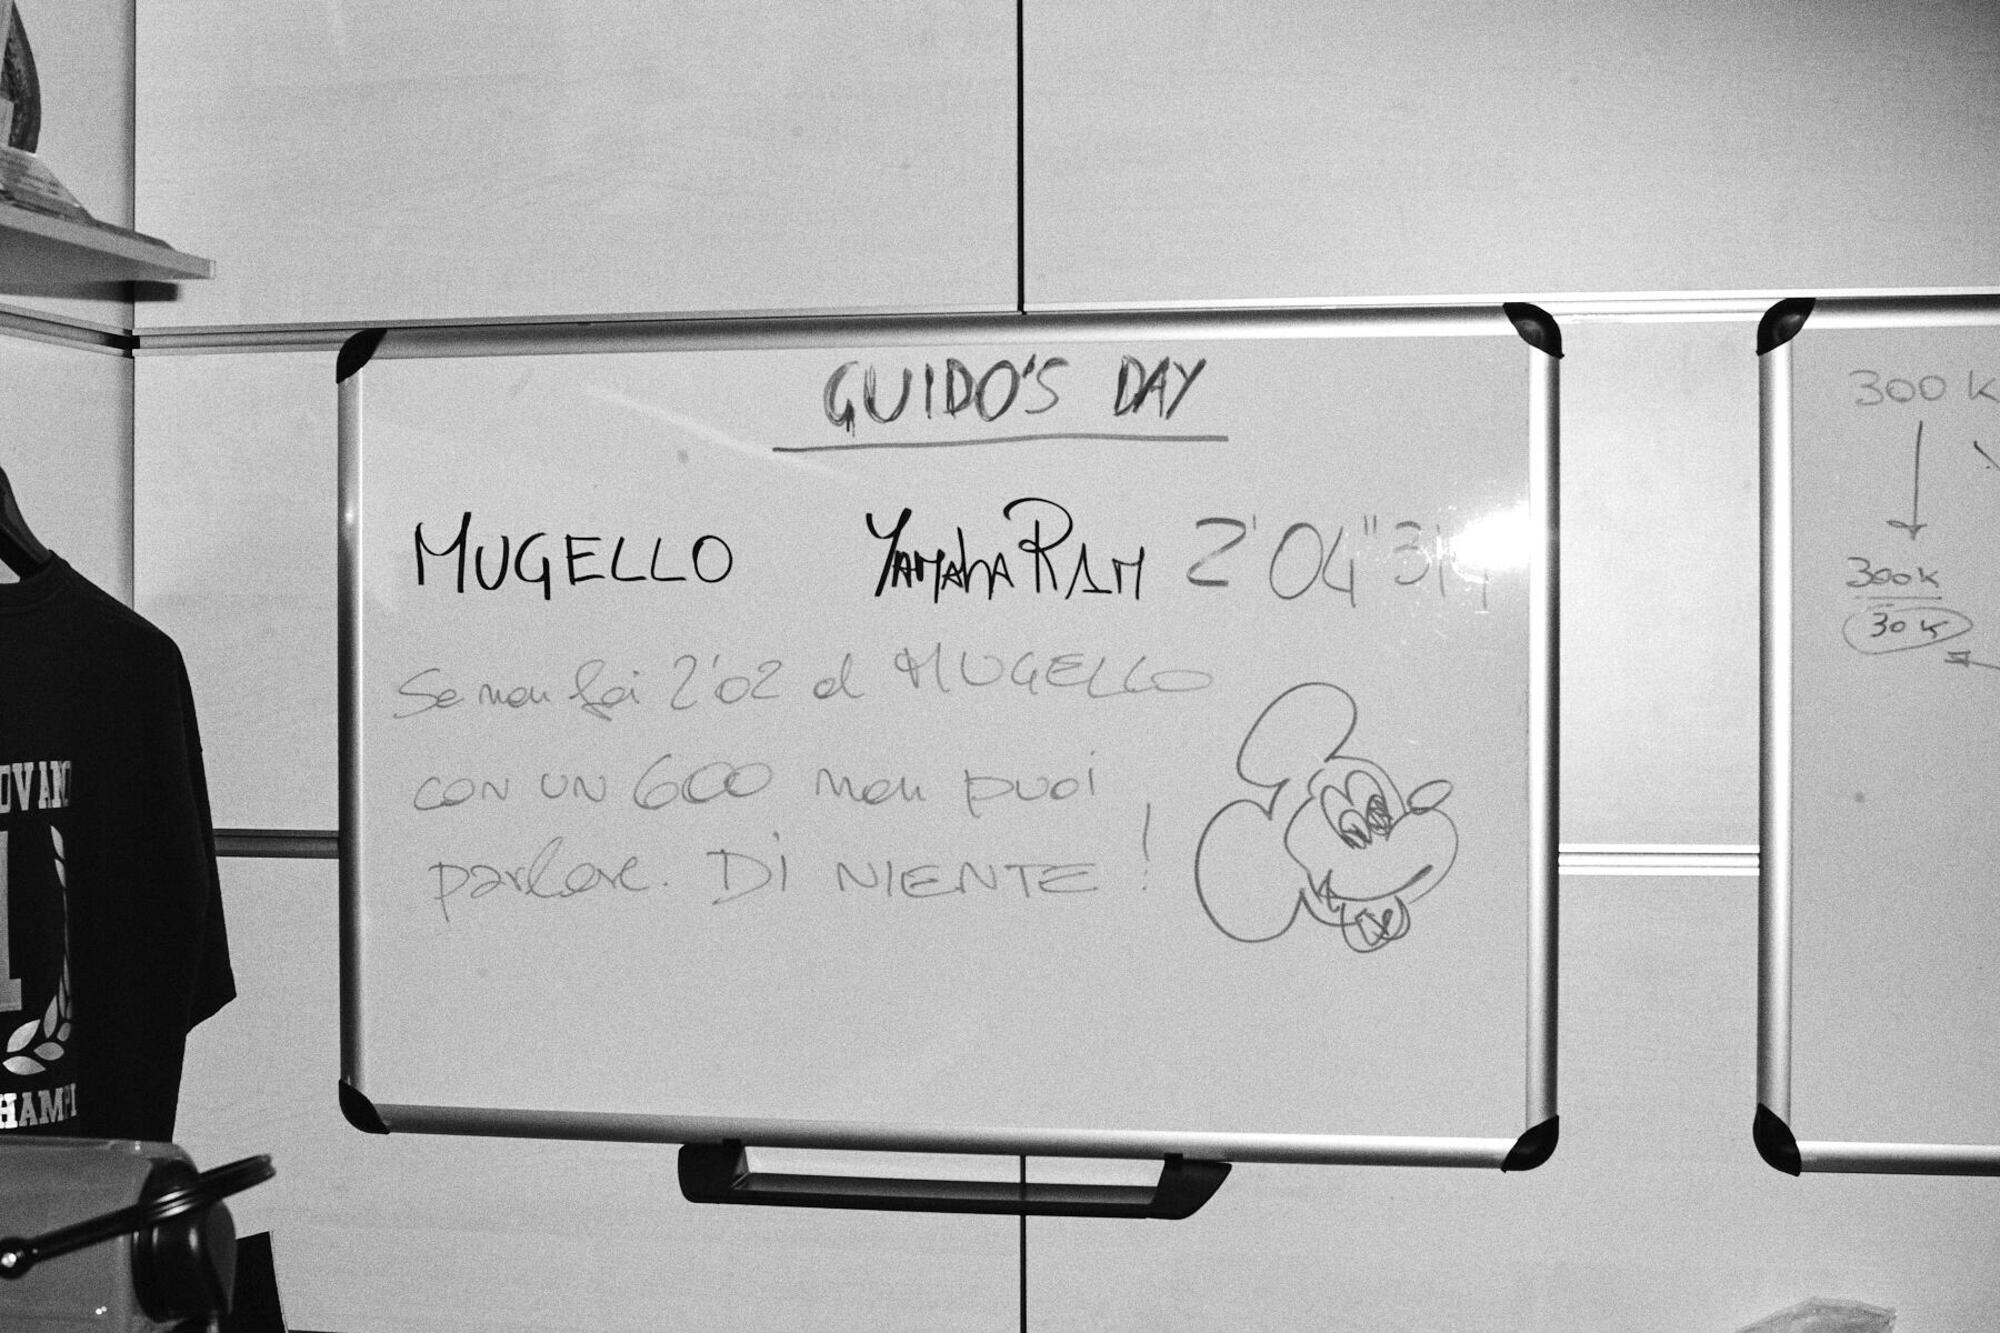 GUIDO'S DAY
MUGELLO YAMAHA R1M 2'04"314
Se non fai 2'02 al MUGELLO
CON UN 600 non puoi
parlare. DI NIENTE!
300 K
300K
30 K
OVAN
1
HAMPI